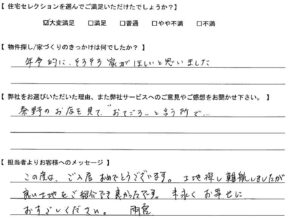 【 住宅セレクションを選んでご満足いただけたでしょうか？ 】
☑大変満足 □満足 □普通 □やや不満 □不満
【 物件探し/家づくりのきっかけは何でしたか？ 】
年令的に、そろそろ家がほしいと思いました
【 弊社をお選びいただいた理由、また弊社サービスへのご意見やご感想をお聞かせ下さい。 】
秦野のお店を見て、"おすごろ"と言う所で…
【 担当者よりお客様へのメッセージ 】
この度は、ご入居おめでとうございます。土地探し難航しましたが
良い土地をご紹介でき良かったです。末永くお幸せに
おすごしください。 雨宮